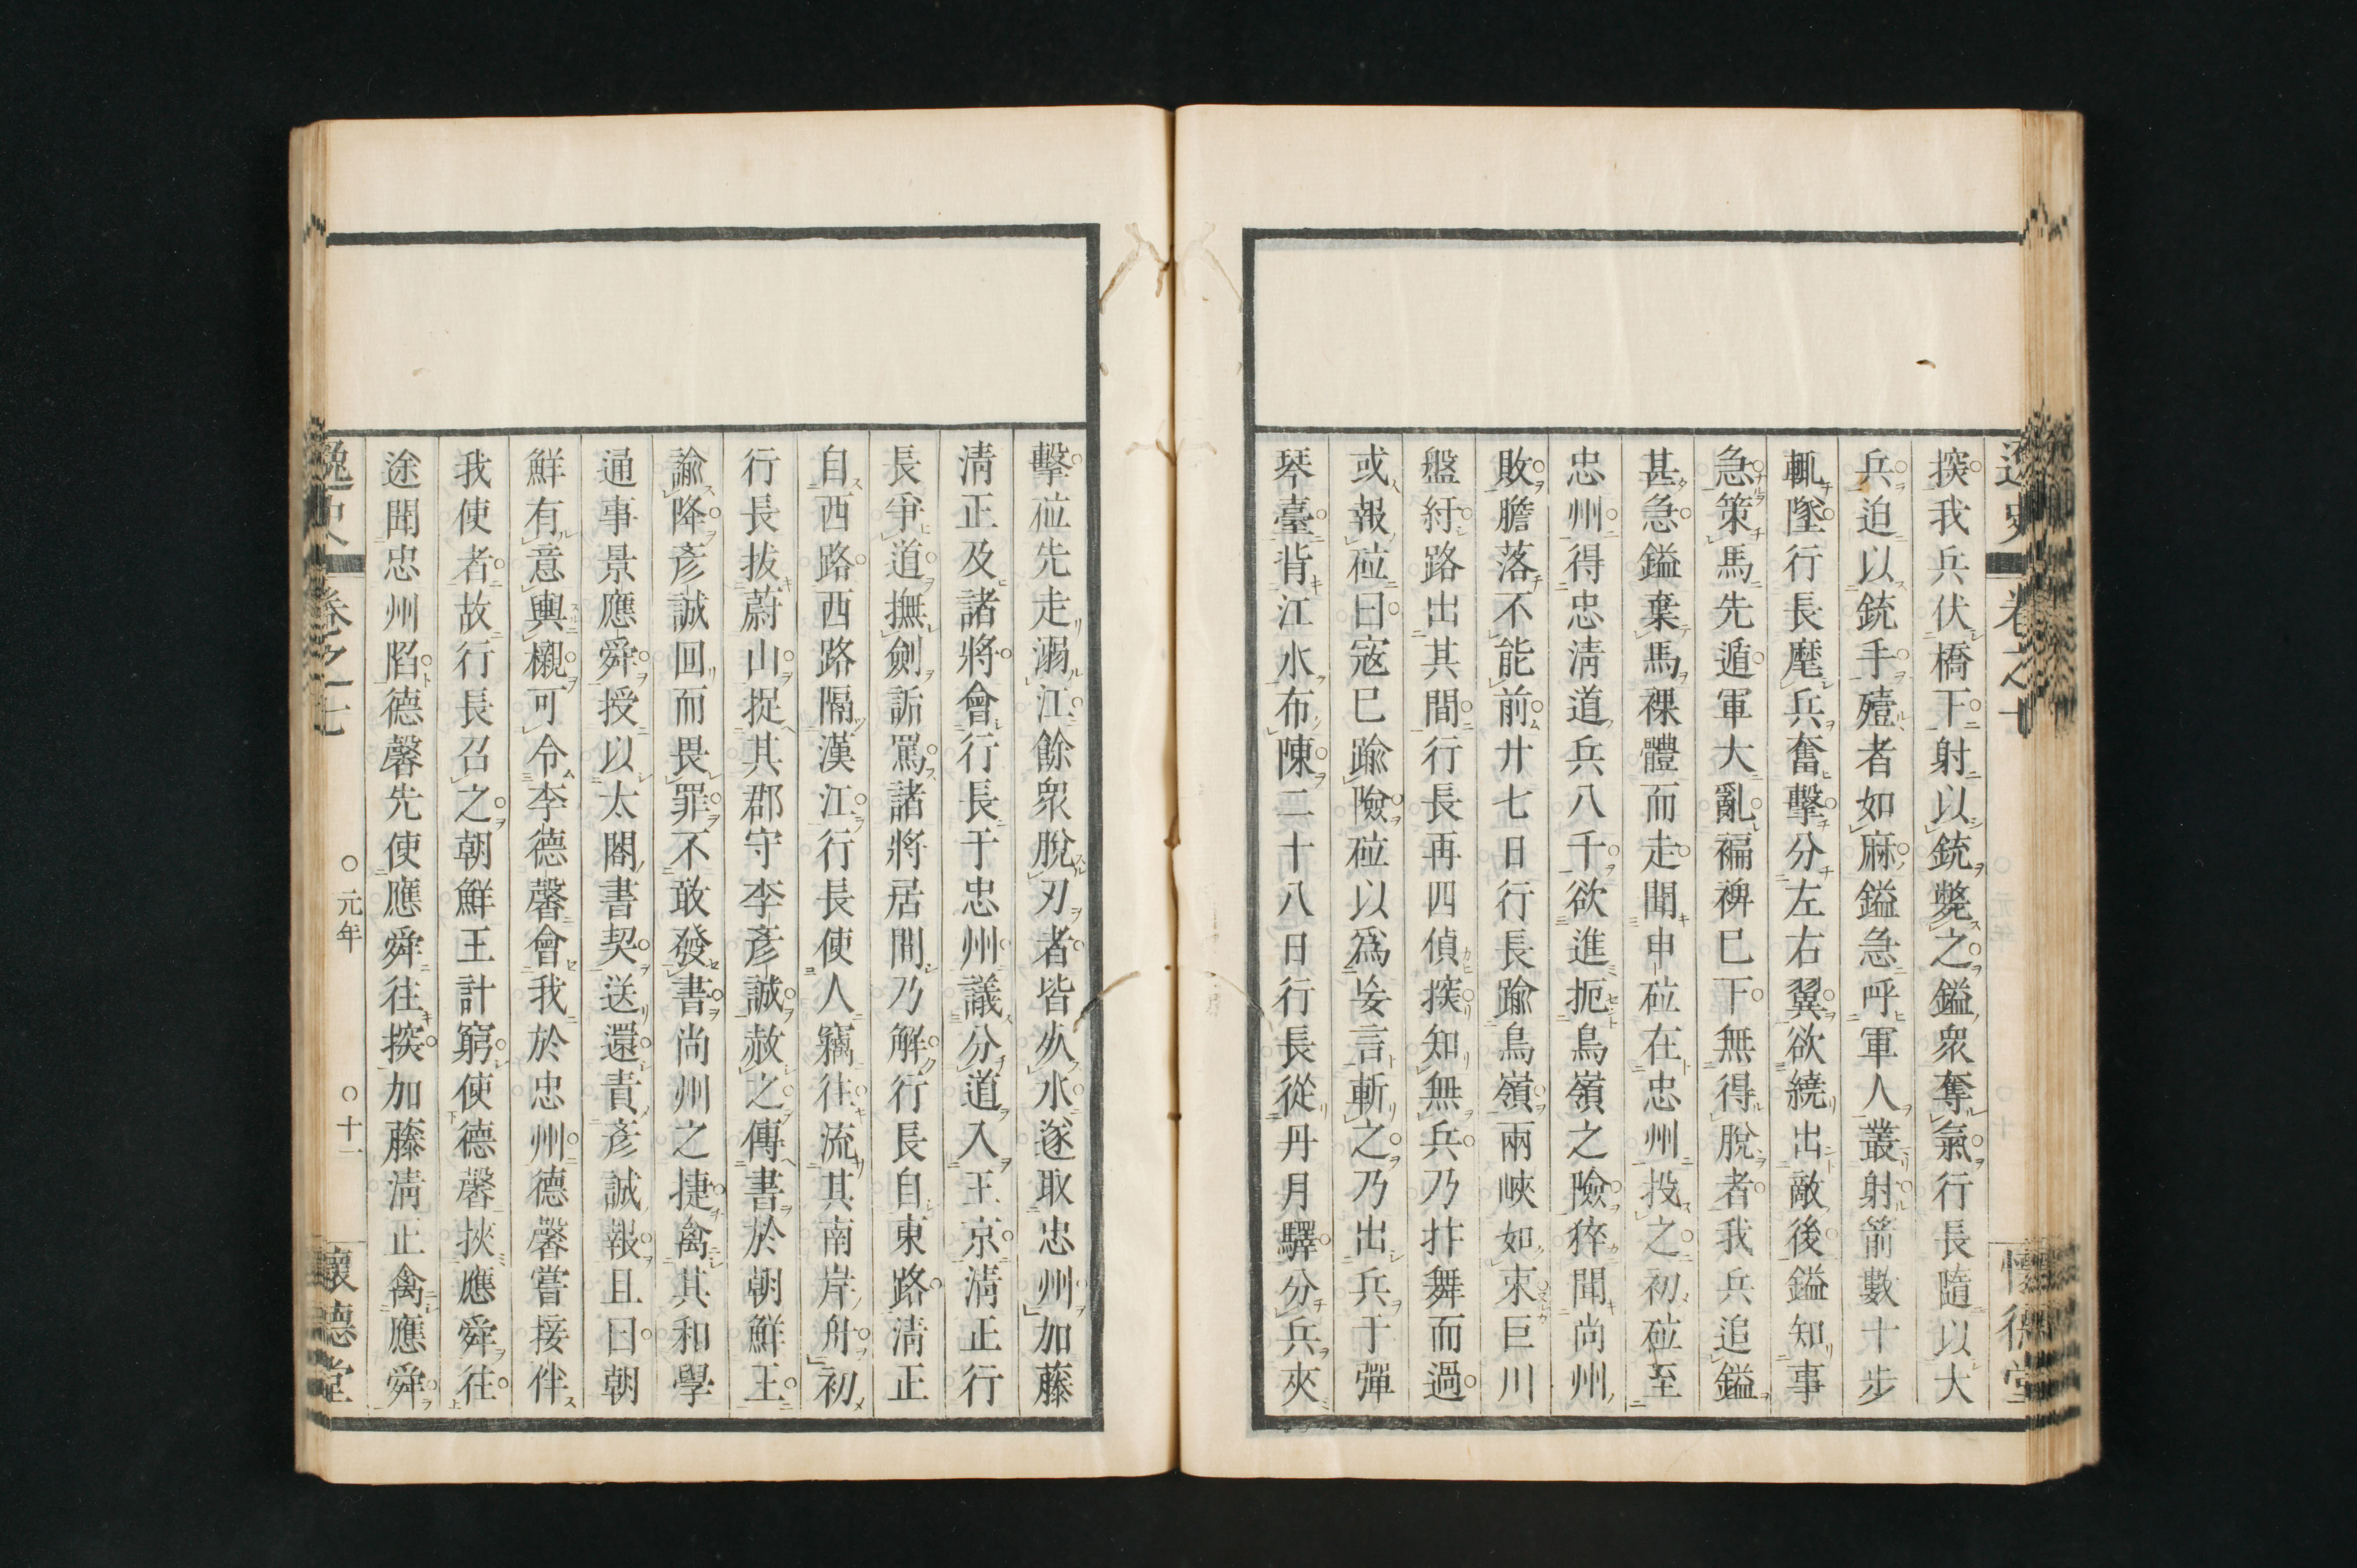 探我兵伏橋下射以銃斃之鎰衆奪氣行長隨以大
兵迫以銃手殪者如麻鎰急呼軍人叢射箭數十步
輒墜行長麾兵奮擊分左右翼欲繞出敵後鎰知事
急策馬先遁軍大亂褊裨巳下無得脫者我兵追鎰
甚急鎰棄馬裸體而走聞申砬在忠州投之初砬至
忠州得忠淸道兵八千欲進扼鳥嶺之險猝聞尚州
敗膽落不能前廿七日行長踰鳥嶺兩峽如束巨川
盤紆路出其間行長再四偵探知無兵乃拃舞而過
或報砬曰寇巳踰險砬以爲妄言斬之乃出兵于彈
琴臺背江水布陳二十八日行長從丹月驛分兵夾
擊砬先走溺江餘衆脫刃者皆赴水遂取忠州加藤
淸正及諸將會行長于忠州議分道入王京淸正行
長爭道撫劍詬罵諸將居間乃解行長自東路淸正
自西路西路隔漢江行長使人竊往流其南岸舟初
行長拔蔚山捉其郡守李彥誠赦之傳書於朝鮮王
諭降彥誠回而畏罪不敢發書尚州之捷禽其和學
通事景應舜授以太閤書契送還責彥誠報且曰朝
鮮有意輿櫬可令李德馨會我於忠州德馨嘗接伴
我使者故行長召之朝鮮王計窮使德馨挾應舜往
途聞忠州陷德馨先使應舜往探加藤淸正禽應舜
逸史 卷之七 ○元年 ○十一 懷德堂